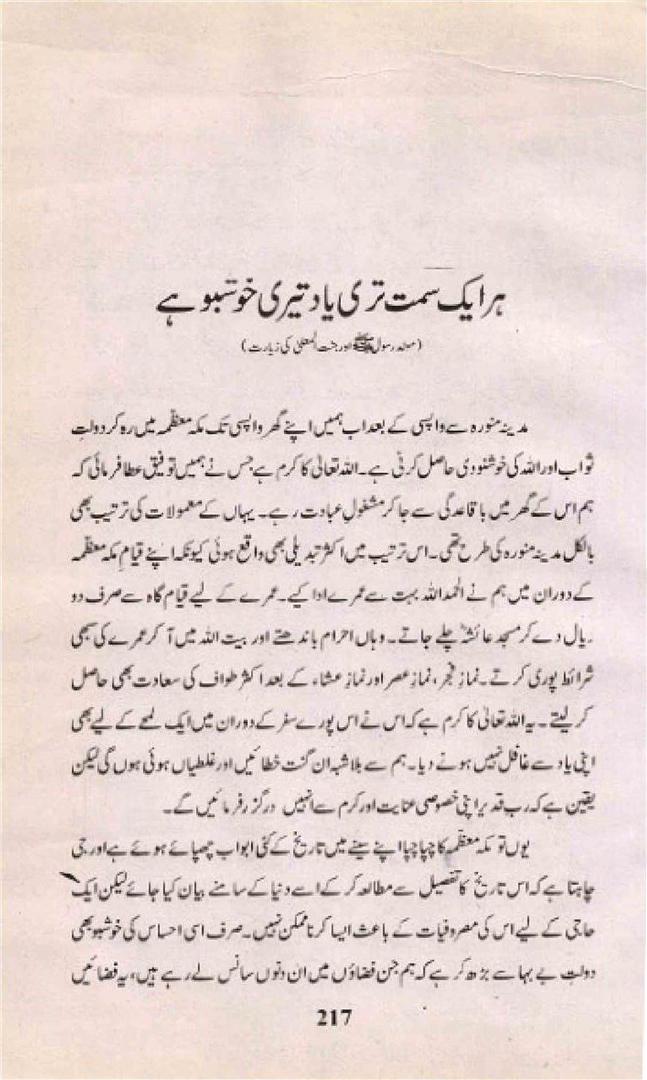 ہر ایک سمت تری یاد تیری خوشبو ہے
(مولد رسول ﷺ اور جنت المعلیٰ کی زیارت)
مدینہ منورہ سے واپسی کے بعد اب ہمیں اپنے گھر واپسی تک مکہ معظمہ میں رہ کر دولتِ
ثواب اور اللہ کی خوشنودی حاصل کرنی ہے۔ اللہ تعالیٰ کا کرم ہے جس نے ہمیں توفیق عطا فرمائی کہ
ہم اس کے گھر میں باقاعدگی سے جا کر مشغولِ عبادت رہے۔ یہاں کے معمولات کی ترتیب بھی
بالکل مدینہ منورہ کی طرح تھی۔ اس ترتیب میں اکثر تبدیلی بھی واقع ہوئی کیونکہ اپنے قیامِ مکہ معظمہ
کے دوران میں ہم نے الحمد اللہ بہت سے عمرے ادا کیے۔ عمرے کے لیے قیام گاہ سے صرف دو
ریال دے کر مسجد عائشہؓ چلے جاتے۔ وہاں احرام باندھتے اور بیت اللہ میں آ کر عمرے کی سبھی
شرائط پوری کرتے۔ نمازِ فجر، نمازِ عصر اور نمازِ عشاء کے بعد اکثر طواف کی سعادت بھی حاصل
کر لیتے۔ یہ اللہ تعالیٰ کا کرم ہے کہ اس نے اس پورے سفر کے دوران میں ایک لمحے کے لیے بھی
اپنی یاد سے غافل نہیں ہونے دیا۔ ہم سے بلاشبہ ان گنت خطائیں اور غلطیاں ہوئی ہوں گی لیکن
یقین ہے کہ ربِ قدیر اپنی خصوصی عنایت اور کرم سے انہیں درگزر فرمائیں گے۔
یوں تو مکہ معظّمہ کا چپا چپا اپنے سینے میں تاریخ کے کئی ابواب چھپائے ہوئے ہے اور جی
چاہتا ہے کہ اس تاریخ کا تفصیل سے مطالعہ کر کے اسے دنیا کے سامنے بیان کیا جائے لیکن ایک
حاجی کے لیے اس کی مصروفیات کے باعث ایسا کرنا ممکن نہیں۔ صرف اسی احساس کی خوشبو بھی
دولتِ بے بہا سے بڑھ کر ہے کہ ہم جن فضاؤں میں ان دنوں سانس لے رہے ہیں، یہ فضائیں
217